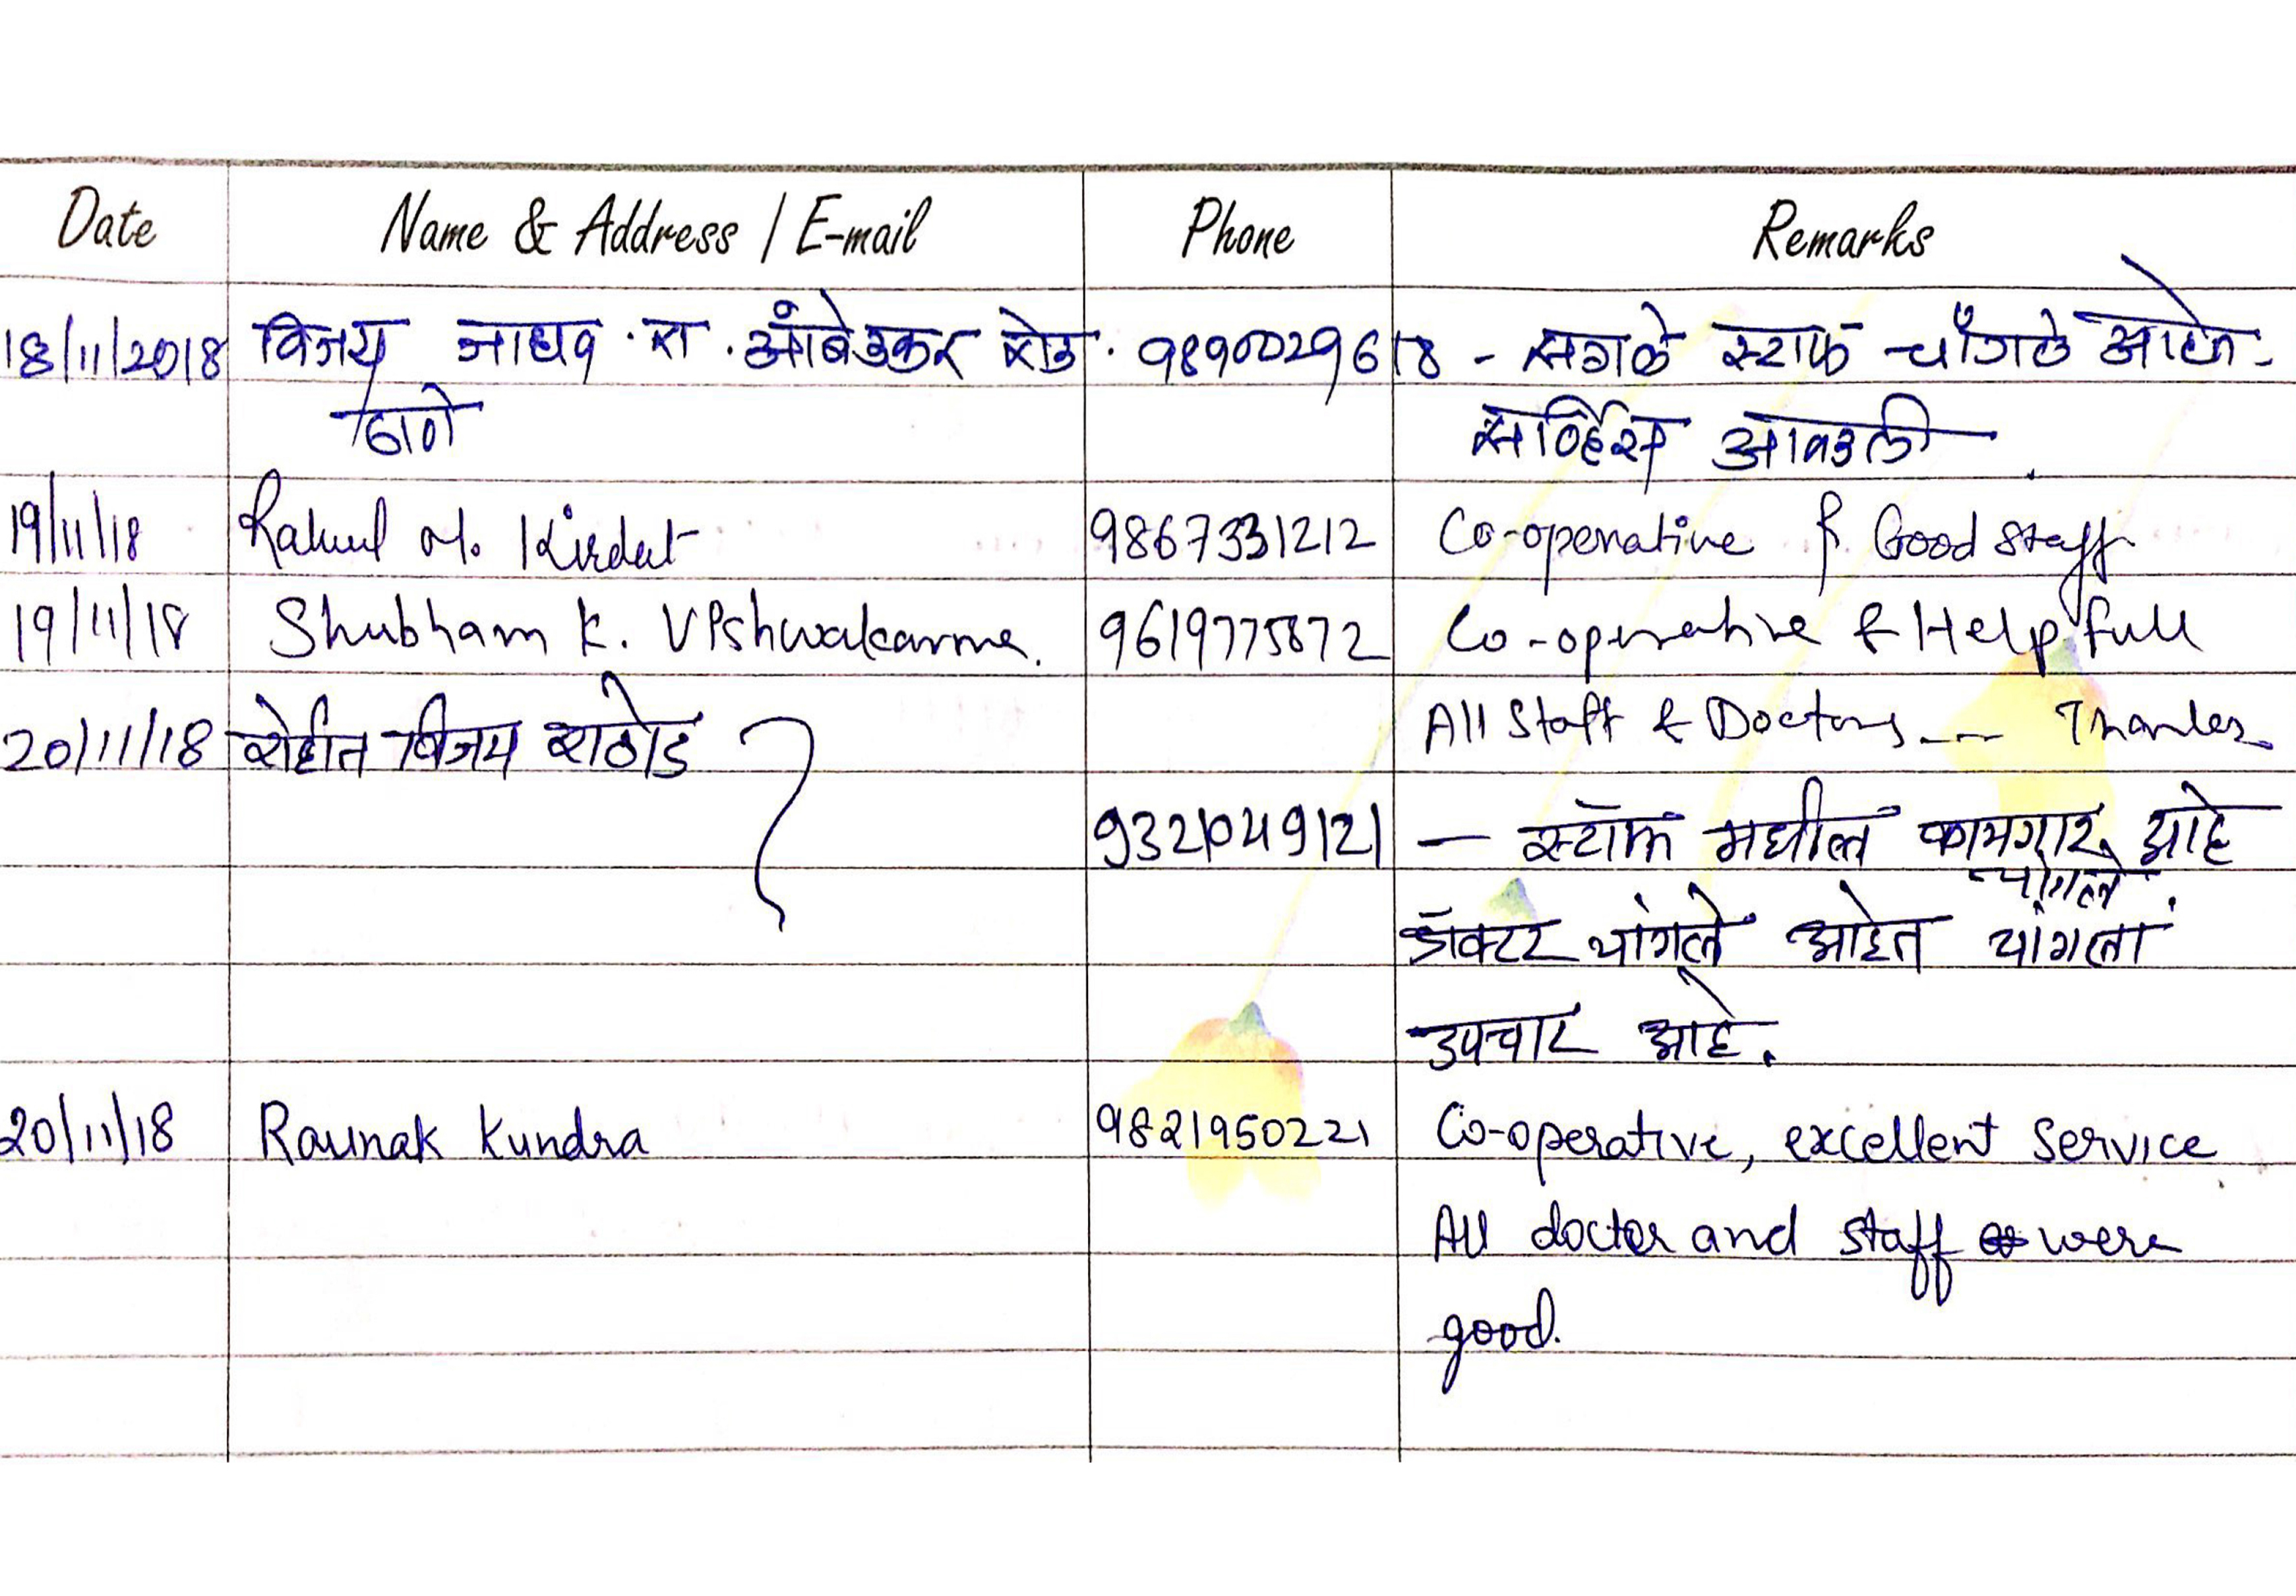 Date Name & Address / E-mail Phone Remarks
18/11/2018 विजय जाधव . रा . आंबेडकर रोड . 9890029618 - सगळे स्टाफ चाँगले आहेत.
ठाणे सर्व्हिस आवडली .
19/11/18 Rahul M. Kirdat 9867331212 Co-operative & Good staff
19/11/18 Shubham K. Vishwakarma. 9619775872 Co-operative & Help full
20/11/18 रोहीत विजय राठोड All Staff & Doctors --- Thanks
9321049121 — स्टॉफ मधील कामगार चांगले आहे.
डॉक्टर चांगले आहेत चांगला
उपचार आहे.
20/11/18 Raunak Kundra 9821950221 Co-operative, excellent Service.
All doctor and staff were
good.